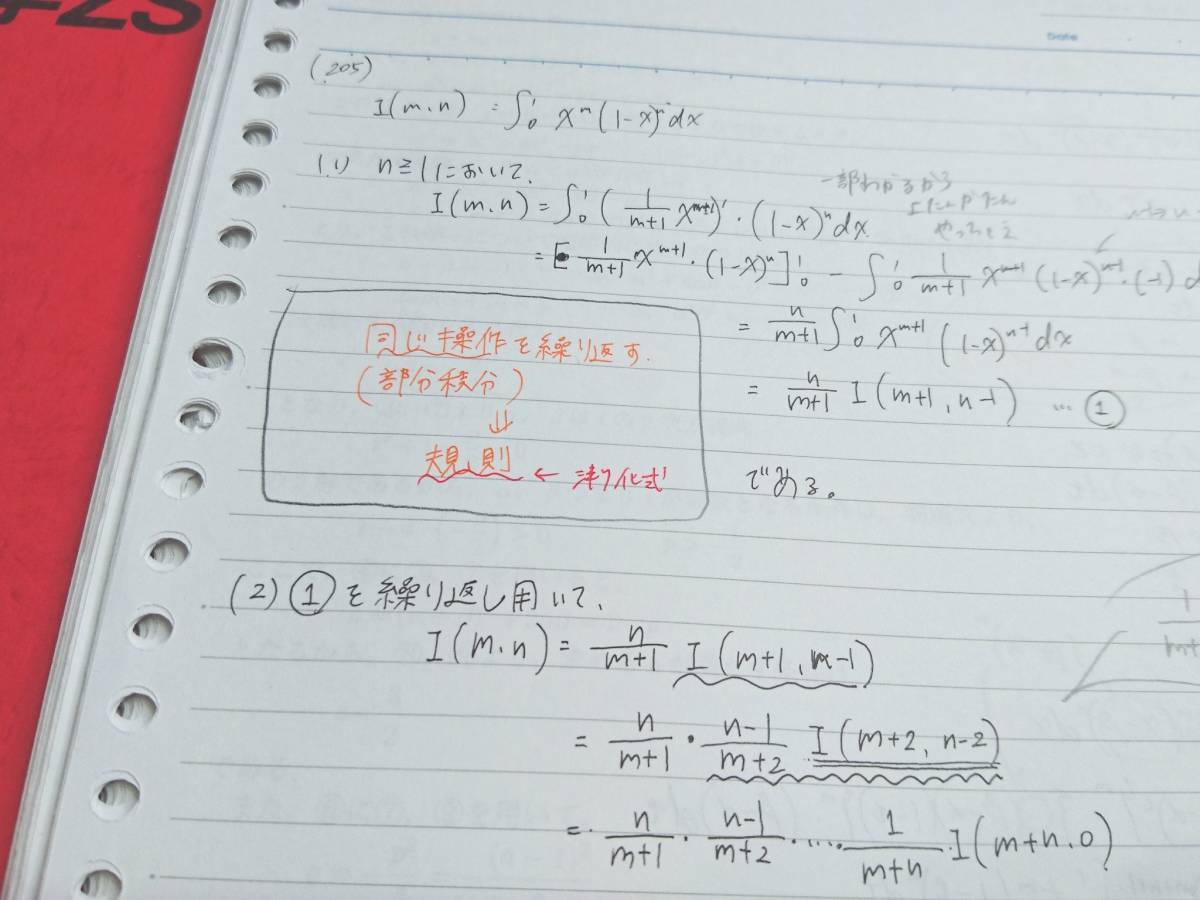 Date
(205)
I(m.n) = ∫₀¹ xᵐ(1-x)ⁿdx
(1) n≧1において、
I(m.n) = ∫₀¹ (1/(m+1) xᵐ⁺¹)'・(1-x)ⁿdx
= [1/(m+1) xᵐ⁺¹・(1-x)ⁿ]₀¹ - ∫₀¹ 1/(m+1) xᵐ⁺¹(1-x)ⁿ⁻¹・(-1)
= n/(m+1) ∫₀¹ xᵐ⁺¹(1-x)ⁿ⁻¹dx
= n/(m+1) I(m+1, n-1) … ①
である。
同じ操作を繰り返す.
(部分積分)
⇓
規則 ← 漸化式
(2) ①を繰り返し用いて、
I(m.n) = n/(m+1) I(m+1, n-1)
= n/(m+1)・(n-1)/(m+2) I(m+2, n-2)
= n/(m+1)・(n-1)/(m+2)・…・1/(m+n)・I(m+n.0)